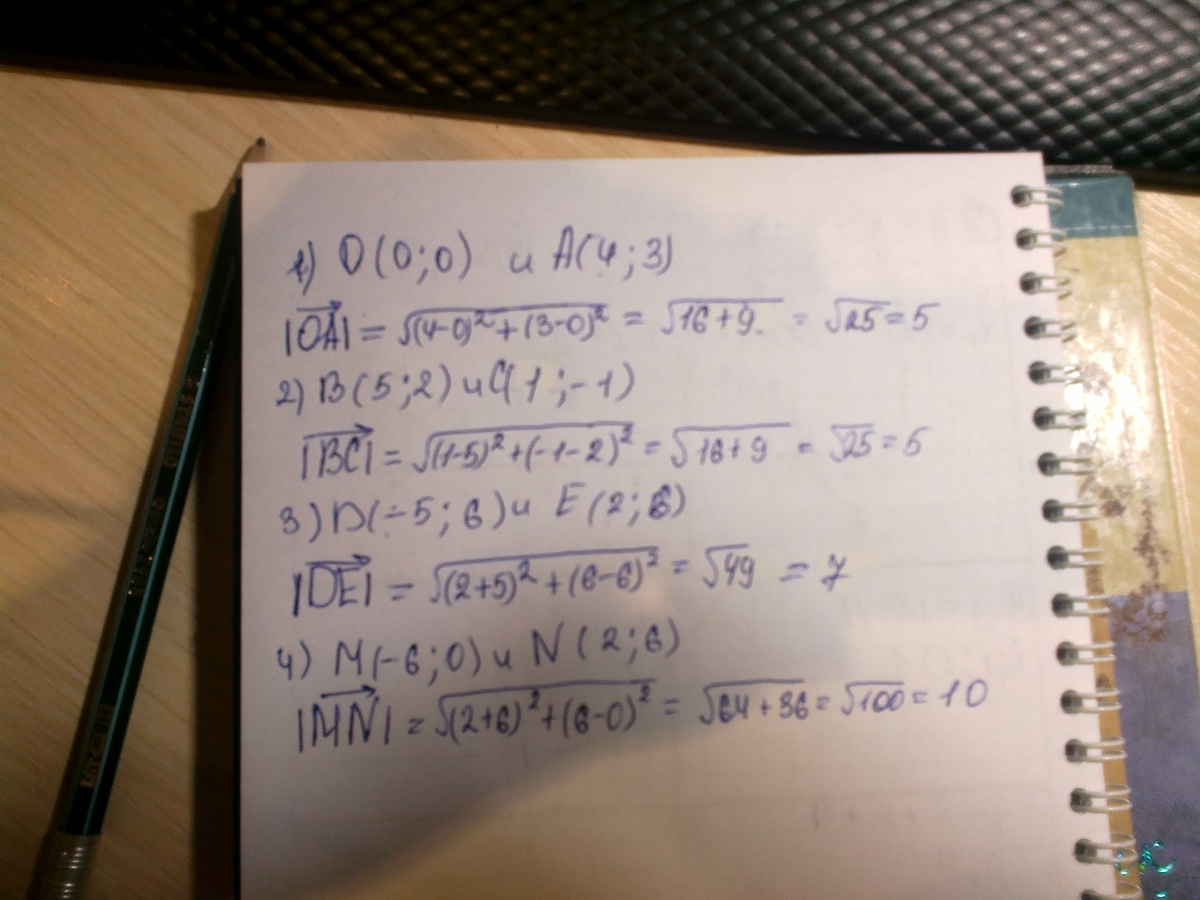 1) O(0;0) и A(4;3)
|OA| = √(4-0)²+(3-0)² = √16+9 = √25 = 5
2) B(5;2) и C(1;-1)
|BC| = √(1-5)²+(-1-2)² = √16+9 = √25 = 5
3) D(-5;6) и E(2;6)
|DE| = √(2+5)²+(6-6)² = √49 = 7
4) M(-6;0) и N(2;6)
|MN| = √(2+6)²+(6-0)² = √64+36 = √100 = 10